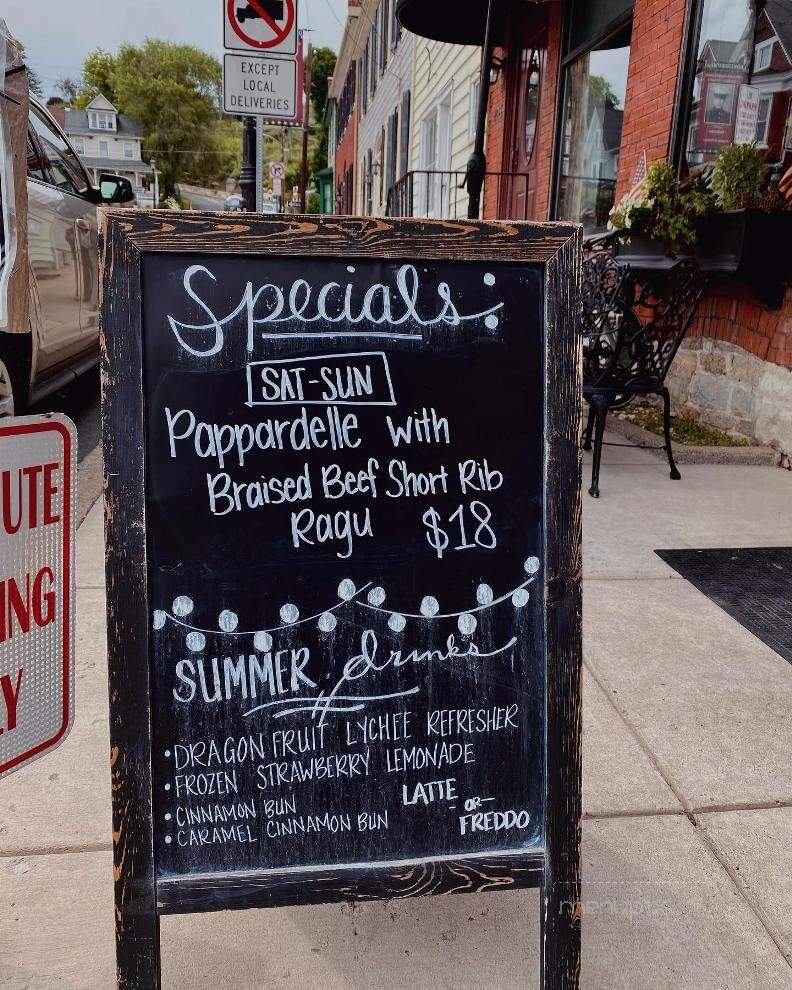 EXCEPT
LOCAL
DELIVERIES
Specials:
SAT-SUN
Pappardelle with
Braised Beef Short Rib
Ragu $18
SUMMER drinks
• DRAGON FRUIT LYCHEE REFRESHER
• FROZEN STRAWBERRY LEMONADE
• CINNAMON BUN
• CARAMEL CINNAMON BUN
LATTE
-OR-
FREDDO
UTE
ING
LY